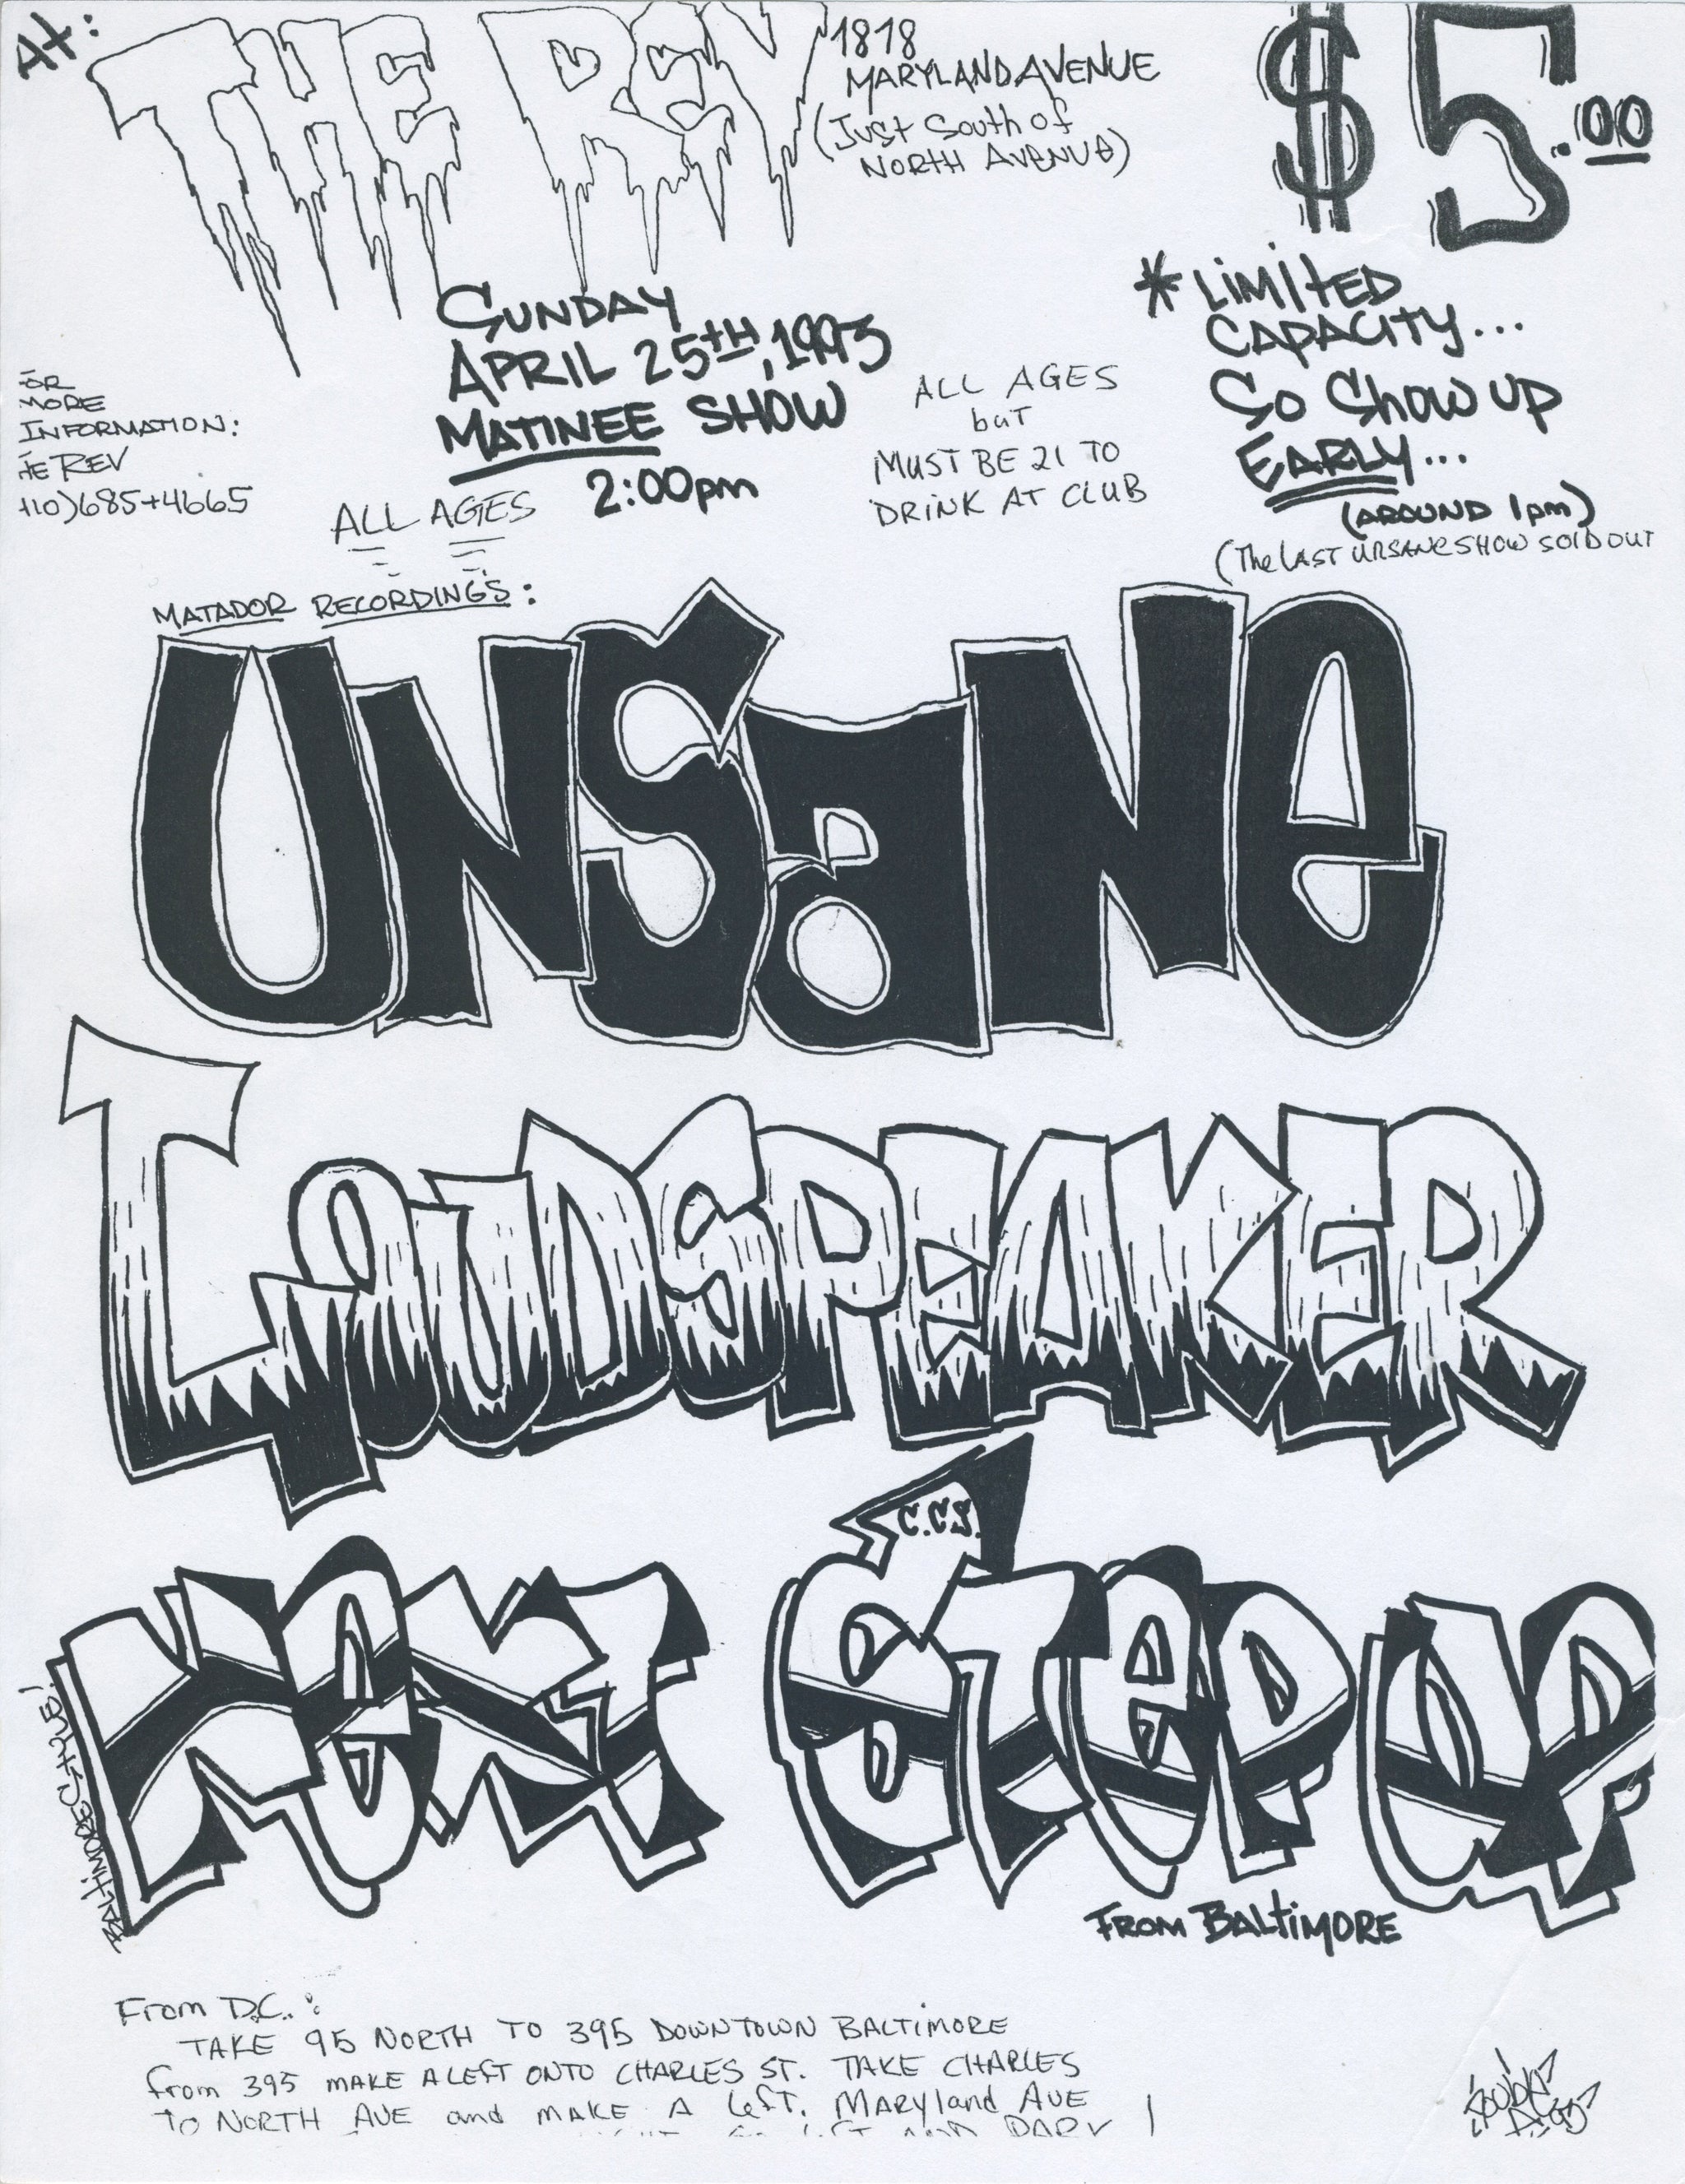 At:
THE REV
1818
MARYLAND AVENUE
(Just South of
NORTH AVENUE)
$5.00
SUNDAY
APRIL 25TH, 1993
MATINEE SHOW
2:00pm
ALL AGES
ALL AGES
but
MUST BE 21 TO
DRINK AT CLUB
* LIMITED
CAPACITY...
SO Show UP
EARLY...
(AROUND 1pm)
(The LAST UNSANE SHOW SOLD OUT
OR
MORE
INFORMATION:
HE REV
410)685+4665
MATADOR RECORDINGS:
UNSaNe
LOUDSPEAKER
C.C.S.
NeXT STeP UP
BALTIMORE STYLE!
FROM BALTIMORE
From D.C.:
TAKE 95 NORTH TO 395 DOWNTOWN BALTIMORE
from 395 MAKE A LEFT ONTO CHARLES ST. TAKE CHARLES
TO NORTH AVE and MAKE A LEFT. MARYLAND AVE